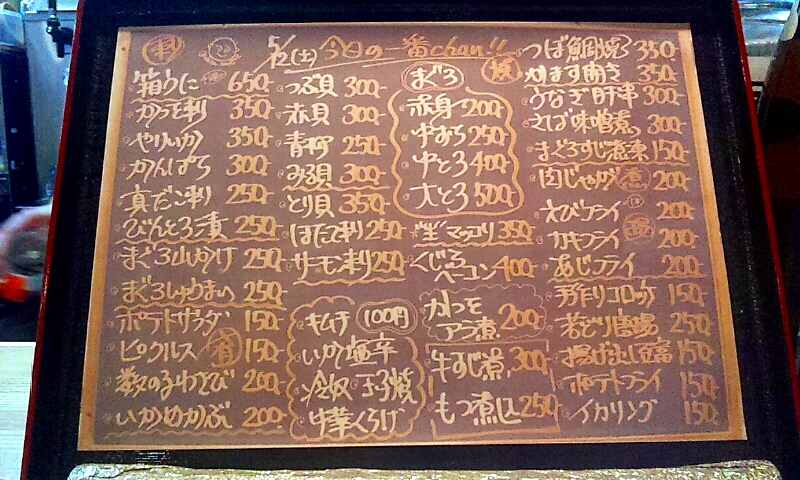 刺 5/2(土) 今日の一番chan!!
箱うに 650-
かつを刺 350-
やりいか 350-
かんぱち 300-
真だこ刺 250-
びんとろ漬 250-
まぐろ山かけ 250-
まぐろしゅうまい 250-
ポテトサラダ 150-
ピクルス 150-
数の子わさび 200-
いかめかぶ 200-
つぶ貝 300-
赤貝 300-
青柳 250-
みる貝 300-
とり貝 350-
ほたて刺 250-
サーモン刺 250-
キムチ 100円
いか塩辛
冷奴 玉子焼
中華くらげ
まぐろ
赤身 200-
中おち 250-
中とろ 400-
大とろ 500-
生マッコリ 350-
くじらベーコン 400-
かつを
アラ煮 200-
牛すじ煮 300-
もつ煮込 250-
焼
つぼ鯛焼 350-
かます開き 350-
うなぎ肝串 300-
さば味噌煮 300-
まぐろすじ煮凍 150-
肉じゃが 煮 200-
えびフライ 200-
カキフライ 200-
あじフライ 200-
手作りコロッケ 150-
若どり唐揚 250-
揚げ出し豆腐 150-
ポテトフライ 150-
イカリング 150-